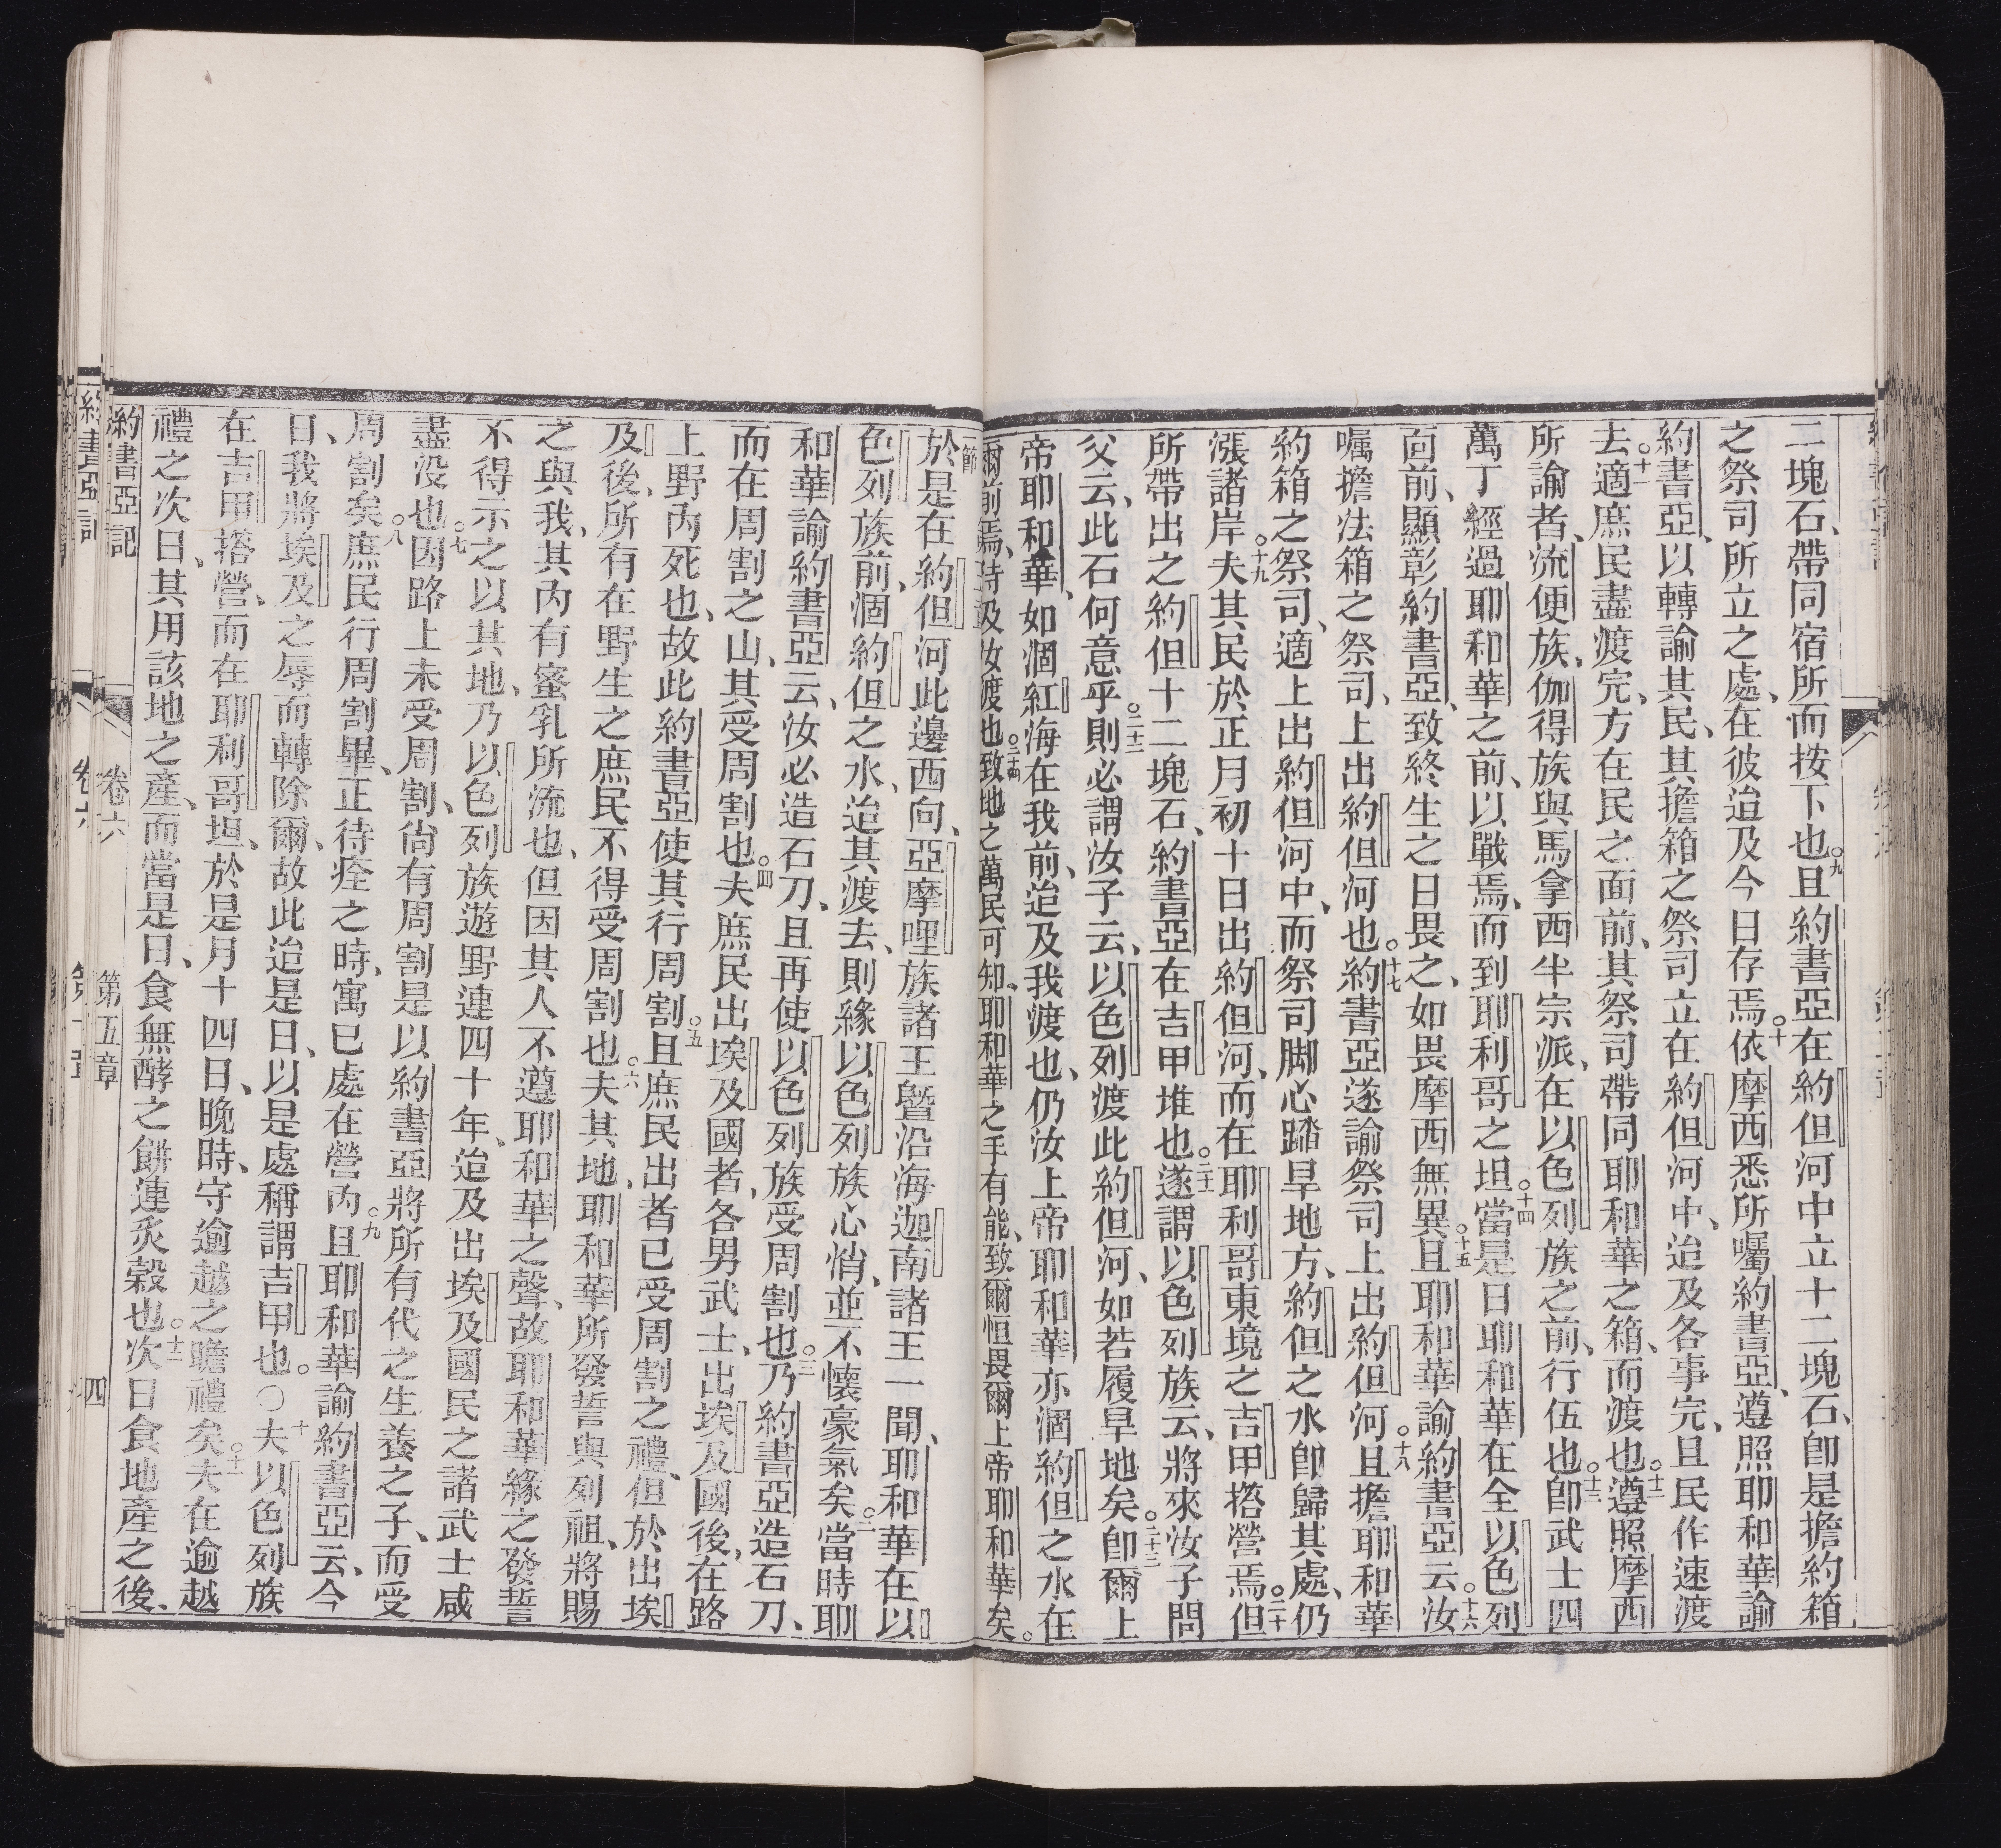 二塊石、帶同宿所而按下也。九且約書亞在約但河中立十二塊石、卽是擔約箱
之祭司所立之處、在彼迨及今日存焉。十依摩西悉所囑約書亞、遵照耶和華諭
約書亞、以轉諭其民、其擔箱之祭司立在約但河中、迨及各事完、且民作速渡
去。十一適庶民盡渡完、方在民之面前、其祭司帶同耶和華之箱、而渡也。十二遵照摩西
所諭者、流便族、伽得族與馬拿西半宗派、在以色列族之前、行伍也。十三卽武士四
萬丁經過耶和華之前、以戰焉、而到耶利哥之坦。十四當是日耶和華在全以色列
面前、顯彰約書亞、致終生之日畏之、如畏摩西無異。十五且耶和華諭約書亞云、汝
囑擔法箱之祭司、上出約但河也。十七約書亞遂諭祭司上出約但河。十八且擔耶和華
約箱之祭司、適上出約但河中、而祭司脚心踏旱地方、約但之水卽歸其處、仍
漲諸岸。十九夫其民於正月初十日出約但河、而在耶利哥東境之吉甲搭營焉。二十但
所帶出之約但十二塊石、約書亞在吉甲堆也。二十一遂謂以色列族云、將來汝子問
父云、此石何意乎。二十二則必謂汝子云、以色列渡此約但河、如若履旱地矣。二十三卽爾上
帝耶和華、如個紅海在我前、迨及我渡也、仍汝上帝耶和華亦涸約但之水在
爾前焉、待及汝渡也。二十四致地之萬民可知、耶和華之手有能、致爾恒畏爾上帝耶和華矣。
於是在約但河此邊西向、亞摩哩族諸王曁沿海迦南諸王一聞、耶和華在以
色列族前、涸約但之水、迨其渡去、則緣以色列族心悄、並不懷豪氣矣。二當時耶
和華諭約書亞云、汝必造石刀、且再使以色列族受周割也。三乃約書亞造石刀、
而在周割之山、其受周割也。四夫庶民出埃及國者、各男武士、出埃及國後、在路
上野內死也、故此約書亞使其行周割。五且庶民出者已受周割之禮、但於出埃
及後、所有在野生之庶民不得受周割也。六夫其地、耶和華所發誓與列祖、將賜
之與我、其內有蜜乳所流也、但因其人不遵耶和華之聲、故耶和華緣之發誓
不得示之以其地、乃以色列族遊野連四十年、迨及出埃及國民之諸武士咸
盡没也。七因路上未受周割、尚有周割是以約書亞將所有代之生養之子、而受
周割矣。八庶民行周割畢、正待痊之時、寓已處在營內。九且耶和華諭約書亞云、今
日、我將埃及之辱而轉除爾、故此迨是日、以是處稱謂吉甲也。○十夫以色列族
在吉甲搭營、而在耶利哥坦、於是月十四日、晚時、守逾越之瞻禮矣。十一夫在逾越
禮之次日、其用該地之產、而當是日、食無酵之餅連炙穀也。十二次日食地產之後、
約書亞記 卷六 第五章 四